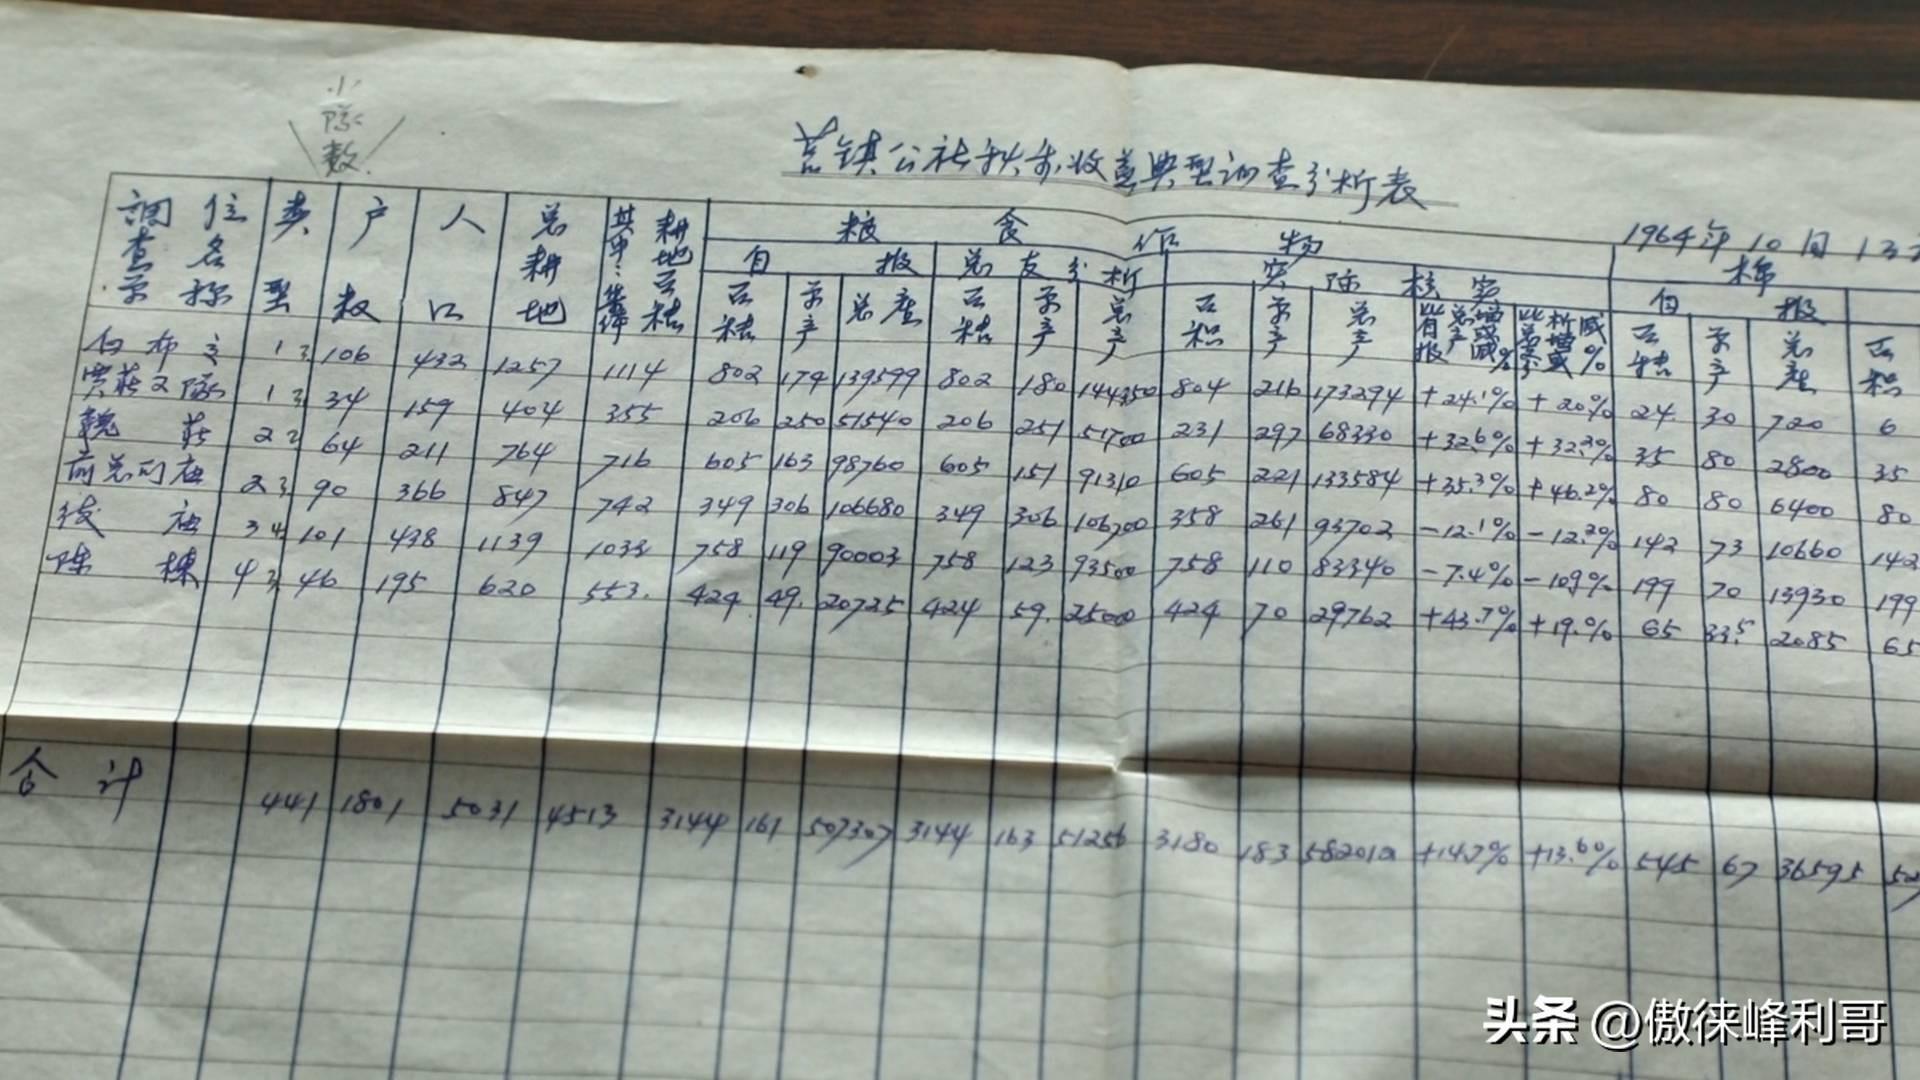 小
队
数
莒镇公社秋季收益典型调查分析表
1964年10月13
调查单位名称 类型 户数 人口 总耕地 其中:集体耕地面积 粮食作物 棉
自报 总支分析 实际核实 自报
面积 单产 总产 面积 单产 总产 面积 单产 总产 比自报总产增减% 面积 单产 总产 面积
1 3 106 432 1257 1114 802 174 139599 802 180 144350 804 216 173294 +24.1% +20% 24 30 720 6
贾庄2队 1 3 34 159 404 355 206 250 51540 206 251 51700 231 297 68330 +32.6% +32.2% 35 80 2800 35
魏庄 2 2 64 211 764 716 605 163 98760 605 151 91310 605 221 133584 +35.3% +46.2% 80 80 6400 80
2 3 90 366 847 742 349 306 106680 349 306 106700 358 261 93702 -12.1% -12.2% 142 73 10660 142
3 4 101 438 1139 1033 758 119 90003 758 123 93500 758 110 83340 -7.4% -10.9% 199 70 13930 199
4 3 46 195 620 553. 424 49. 20725 424 59. 25000 424 70 29762 +43.7% +19.% 65 33.5 2085 65
合计 441 1801 5031 4513 3144 161 507307 3144 163 51256 3180 183 582012 +14.7% +13.6% 545 67 36595
头条 @傲徕峰利哥